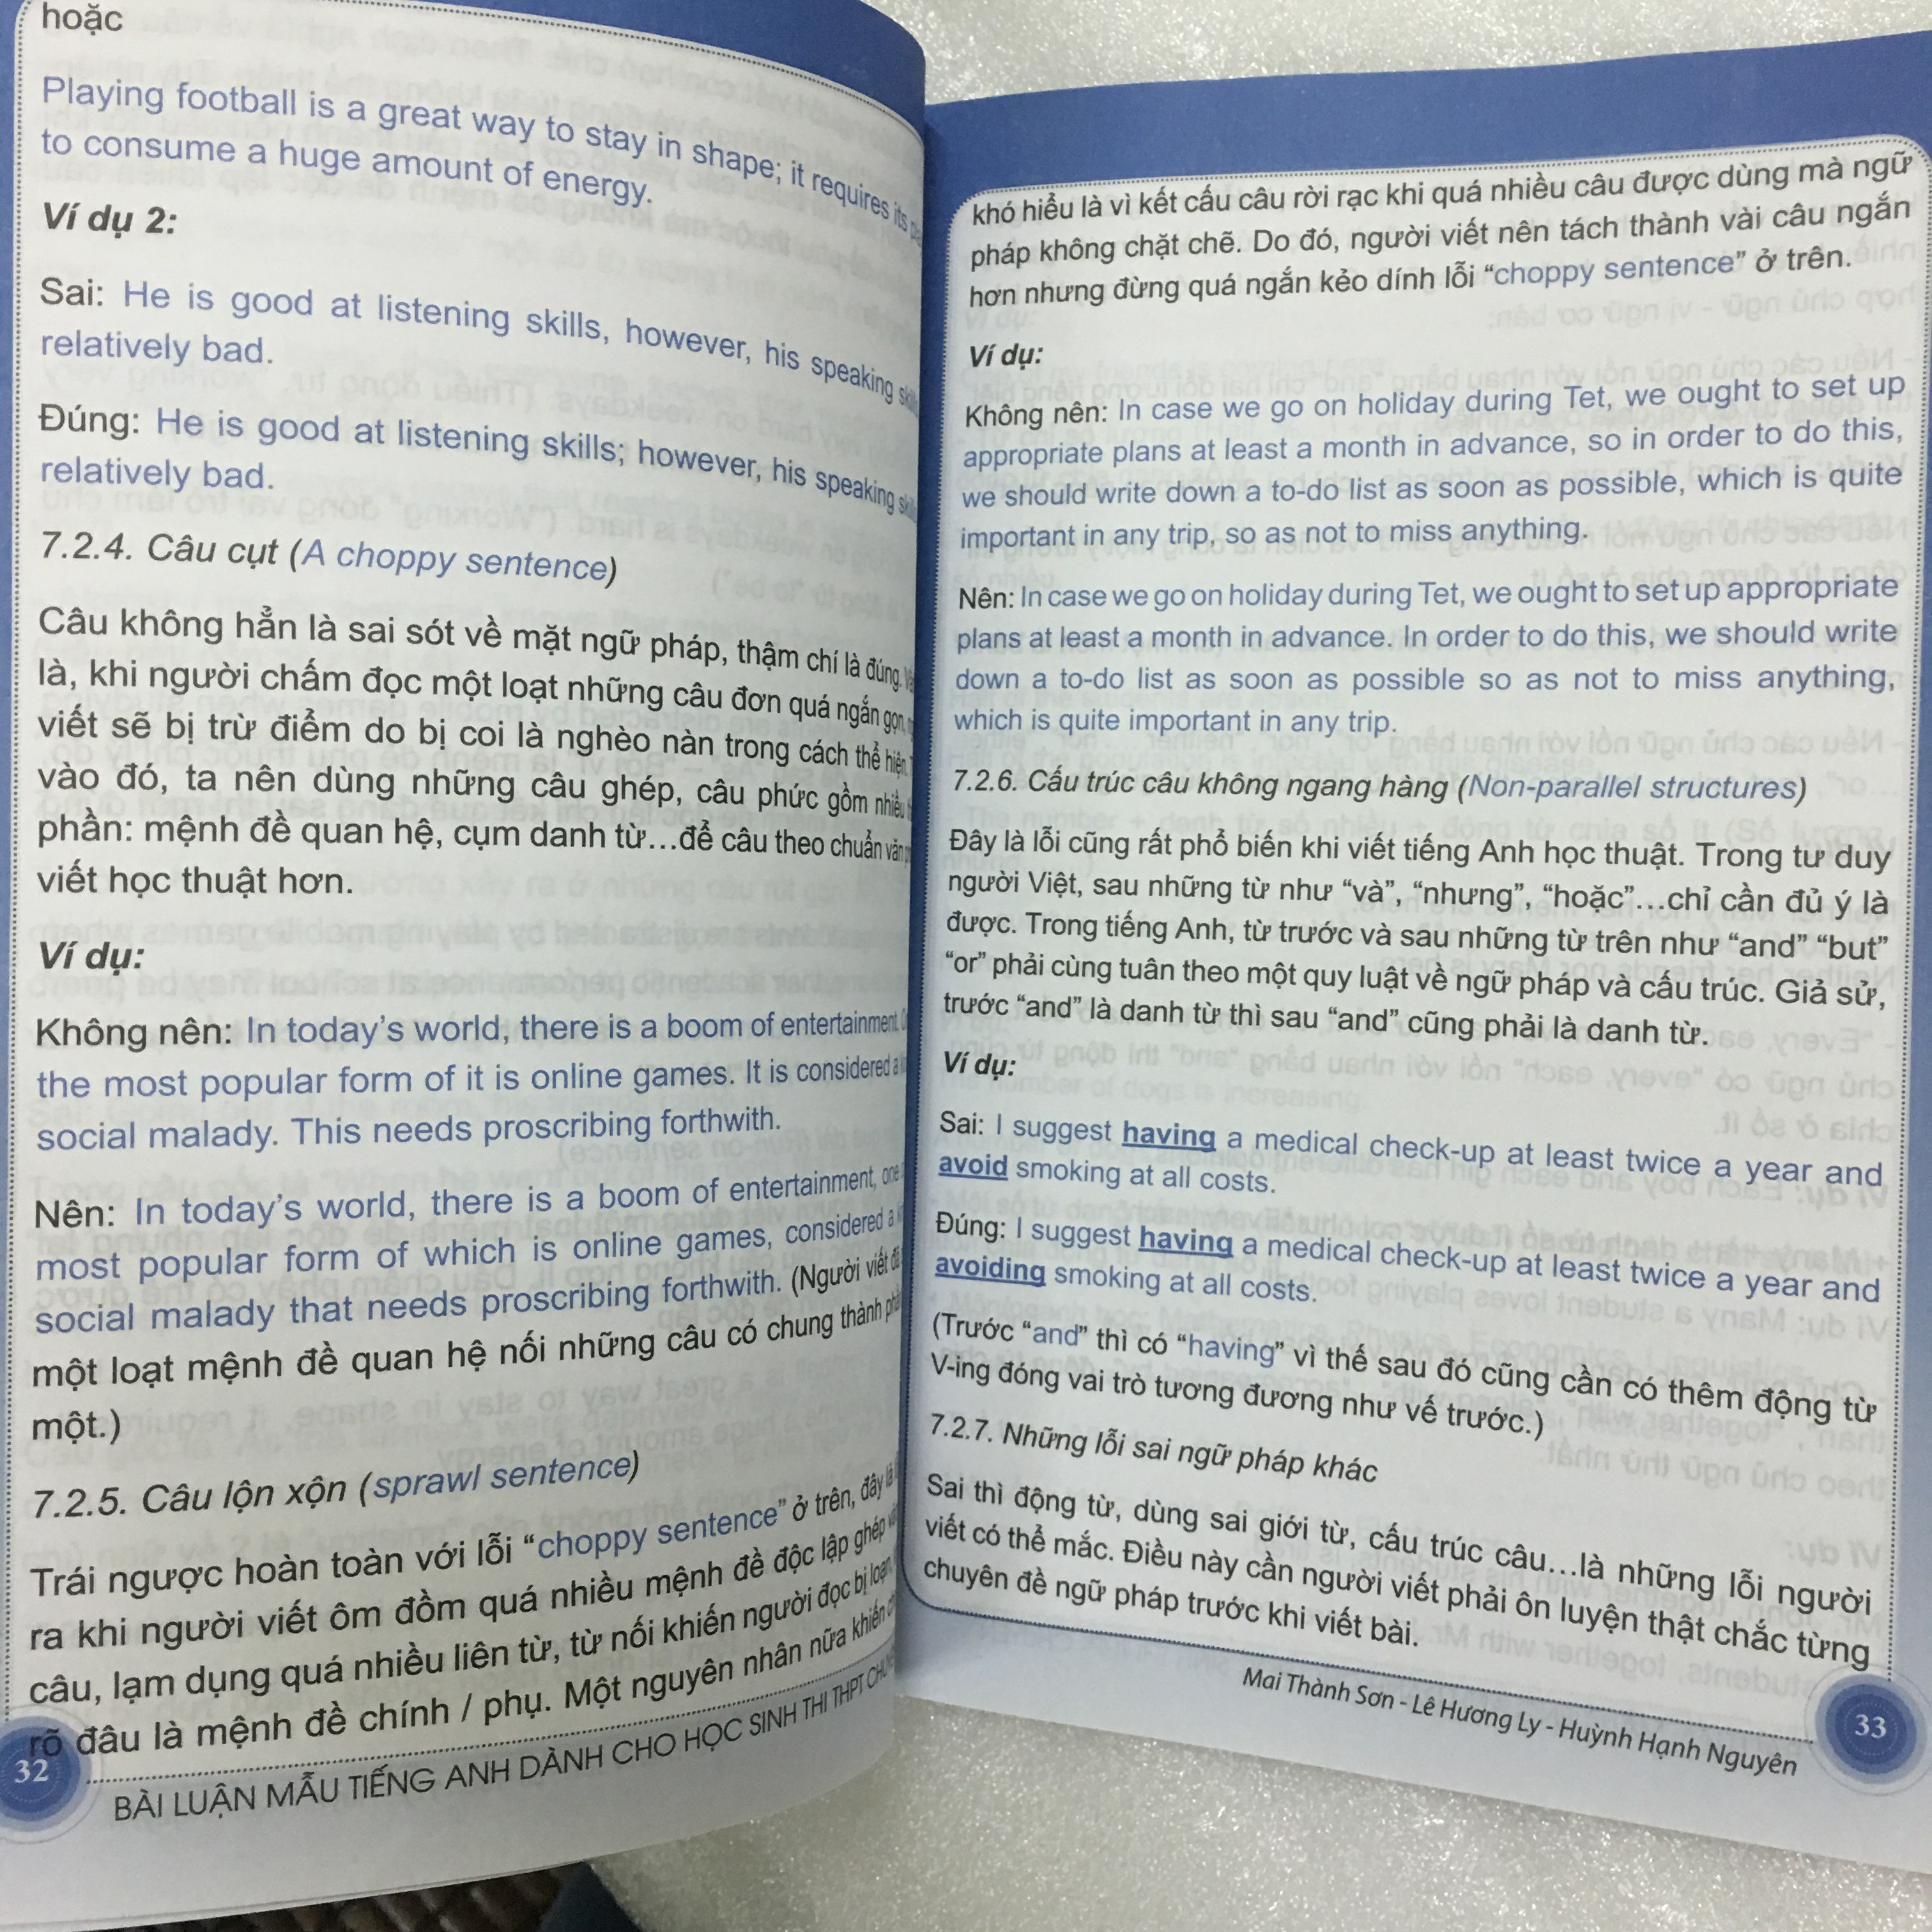 hoặc
Playing football is a great way to stay in shape; it requires its
to consume a huge amount of energy.
Ví dụ 2:
Sai: He is good at listening skills, however, his speaking
relatively bad.
Đúng: He is good at listening skills; however, his speaking
relatively bad.
7.2.4. Câu cụt (A choppy sentence)
Câu không hẳn là sai sót về mặt ngữ pháp, thậm chí là đúng.
là, khi người chấm đọc một loạt những câu đơn quá ngắn gọn,
viết sẽ bị trừ điểm do bị coi là nghèo nàn trong cách thể hiện.
vào đó, ta nên dùng những câu ghép, câu phức gồm nhiều
phần: mệnh đề quan hệ, cụm danh từ...để câu theo chuẩn văn
viết học thuật hơn.
Ví dụ:
Không nên: In today's world, there is a boom of entertainment.
the most popular form of it is online games. It is considered a
social malady. This needs proscribing forthwith.
Nên: In today's world, there is a boom of entertainment, one
most popular form of which is online games, considered a
social malady that needs proscribing forthwith. (Người viết đã
một loạt mệnh đề quan hệ nối những câu có chung thành phần
một.)
7.2.5. Câu lộn xộn (sprawl sentence)
Trái ngược hoàn toàn với lỗi “choppy sentence” ở trên, đây là
ra khi người viết ôm đồm quá nhiều mệnh đề độc lập ghép
câu, lạm dụng quá nhiều liên từ, từ nối khiến người đọc bị loạn,
rõ đâu là mệnh đề chính / phụ. Một nguyên nhân nữa khiến
32
BÀI LUẬN MẪU TIẾNG ANH DÀNH CHO HỌC SINH THI THPT
khó hiểu là vì kết cấu câu rời rạc khi quá nhiều câu được dùng mà ngữ
pháp không chặt chẽ. Do đó, người viết nên tách thành vài câu ngắn
hơn nhưng đừng quá ngắn kẻo dính lỗi “choppy sentence” ở trên.
Ví dụ:
Không nên: In case we go on holiday during Tet, we ought to set up
appropriate plans at least a month in advance, so in order to do this,
we should write down a to-do list as soon as possible, which is quite
important in any trip, so as not to miss anything.
Nên: In case we go on holiday during Tet, we ought to set up appropriate
plans at least a month in advance. In order to do this, we should write
down a to-do list as soon as possible so as not to miss anything,
which is quite important in any trip.
7.2.6. Cấu trúc câu không ngang hàng (Non-parallel structures)
Đây là lỗi cũng rất phổ biến khi viết tiếng Anh học thuật. Trong tư duy
người Việt, sau những từ như “và”, “nhưng”, “hoặc”...chỉ cần đủ ý là
được. Trong tiếng Anh, từ trước và sau những từ trên như “and” “but”
“or” phải cùng tuân theo một quy luật về ngữ pháp và cấu trúc. Giả sử,
trước “and” là danh từ thì sau “and” cũng phải là danh từ.
Ví dụ:
Sai: I suggest having a medical check-up at least twice a year and
avoid smoking at all costs.
Đúng: I suggest having a medical check-up at least twice a year and
avoiding smoking at all costs.
(Trước “and” thì có “having” vì thế sau đó cũng cần có thêm động từ
V-ing đóng vai trò tương đương như vế trước.)
7.2.7. Những lỗi sai ngữ pháp khác
Sai thì động từ, dùng sai giới từ, cấu trúc câu...là những lỗi người
viết có thể mắc. Điều này cần người viết phải ôn luyện thật chắc từng
chuyên đề ngữ pháp trước khi viết bài.
Mai Thành Sơn - Lê Hương Ly - Huỳnh Hạnh Nguyên
33